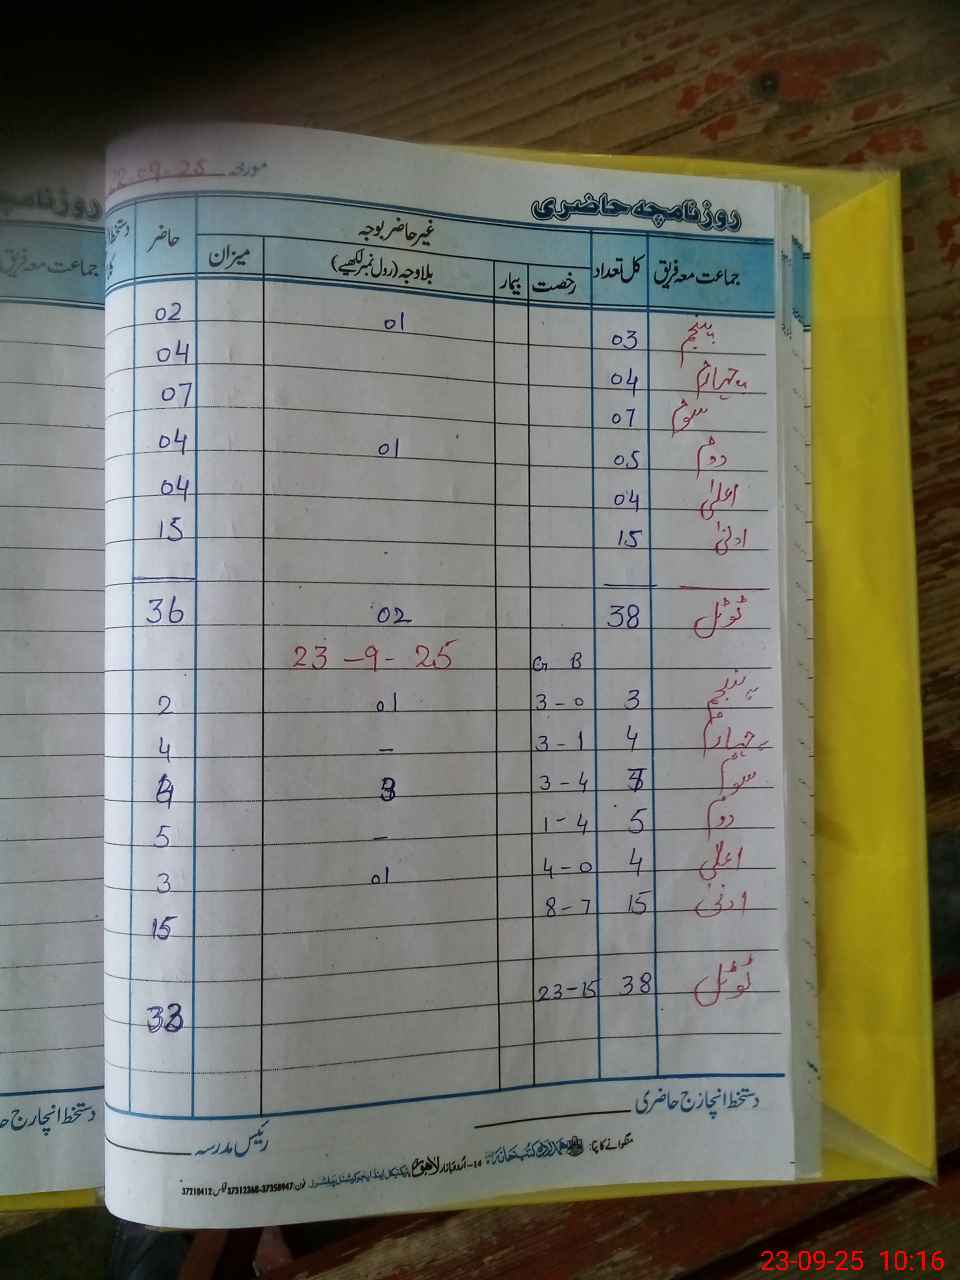 مورخہ 22-09-25
روزنامچہ حاضری
جماعت معہ فریق کل تعداد غیر حاضر بوجہ حاضر
رخصت بیمار بلاوجہ (رول نمبر لکھیے) میزان
پنجم 03 01 02
چہارم 04 04
سوم 07 07
دوم 05 01 04
اعلیٰ 04 04
ادنیٰ 15 15
ٹوٹل 38 02 36
G B 23-9-25
پنجم 3 3-0 01 2
چہارم 4 3-1 - 4
سوم 7 3-4 3 4
دوم 5 1-4 - 5
اعلیٰ 4 4-0 01 3
ادنیٰ 15 8-7 15
ٹوٹل 38 23-15 33
دستخط انچارج حاضری
رئیس مدرسہ
منگوانے کا پتا: کتب خانہ 14-اُردو بازار لاہور فون 37358947-37312368 فیکس 37210412
روزنامچہ
جماعت معہ فریق
دستخط انچارج
23-09-25 10:16